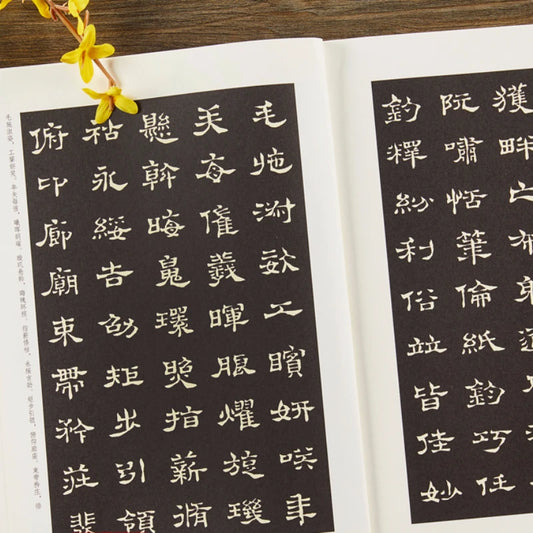 獲
阮嘯恬筆倫紙鈞巧任
釣釋紛利俗並皆佳妙
毛施淑姿工顰妍笑年
矢每催羲暉朗曜旋璣
懸斡晦魄環照指薪脩
祜永綏吉劭矩步引領
俯仰廊廟束帶矜莊徘
毛施淑姿，工顰妍笑。年矢每催，曦暉朗曜。璇璣懸斡，晦魄環照。指薪修祜，永綏吉劭。矩步引領，俯仰廊廟。束帶矜莊，徘